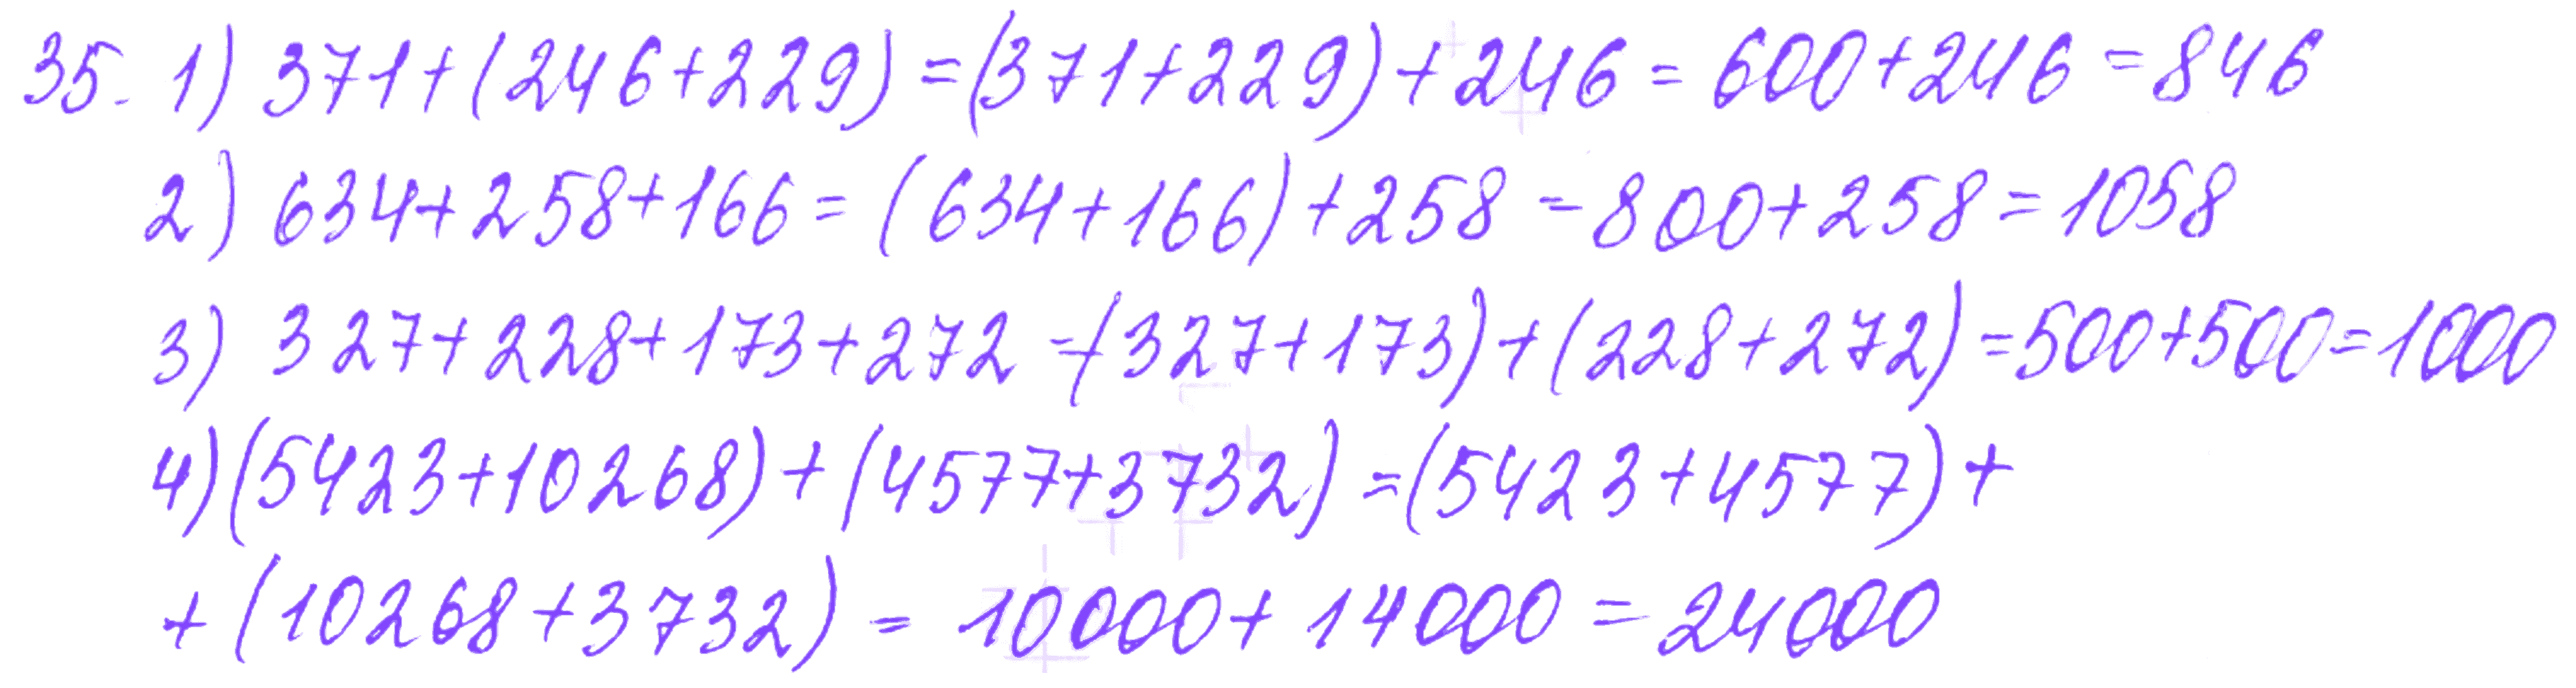 35. 1) 371+(246+229)=(371+229)+246=600+246=846
2) 634+258+166=(634+166)+258=800+258=1058
3) 327+228+173+272=(327+173)+(228+272)=500+500=1000
4) (5423+10268)+(4577+3732)=(5423+4577)+
+(10268+3732)=10000+14000=24000